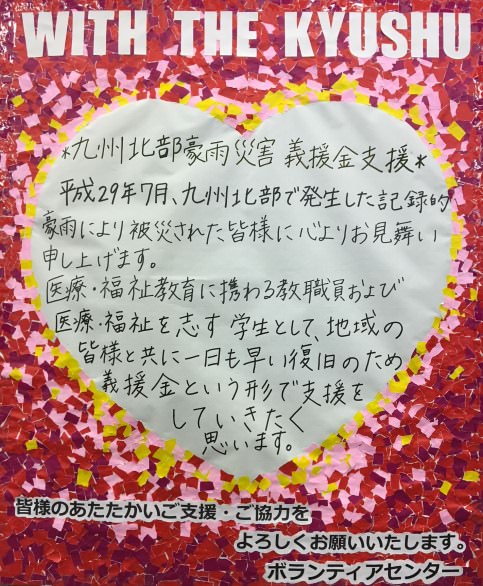 WITH THE KYUSHU
*九州北部豪雨災害 義援金支援*
平成29年7月、九州北部で発生した記録的
豪雨により被災された皆様に心よりお見舞い
申し上げます。
医療・福祉教育に携わる教職員および
医療・福祉を志す学生として、地域の
皆様と共に一日も早い復旧のため
義援金という形で支援を
していきたく
思います。
皆様のあたたかいご支援・ご協力を
よろしくお願いいたします。
ボランティアセンター